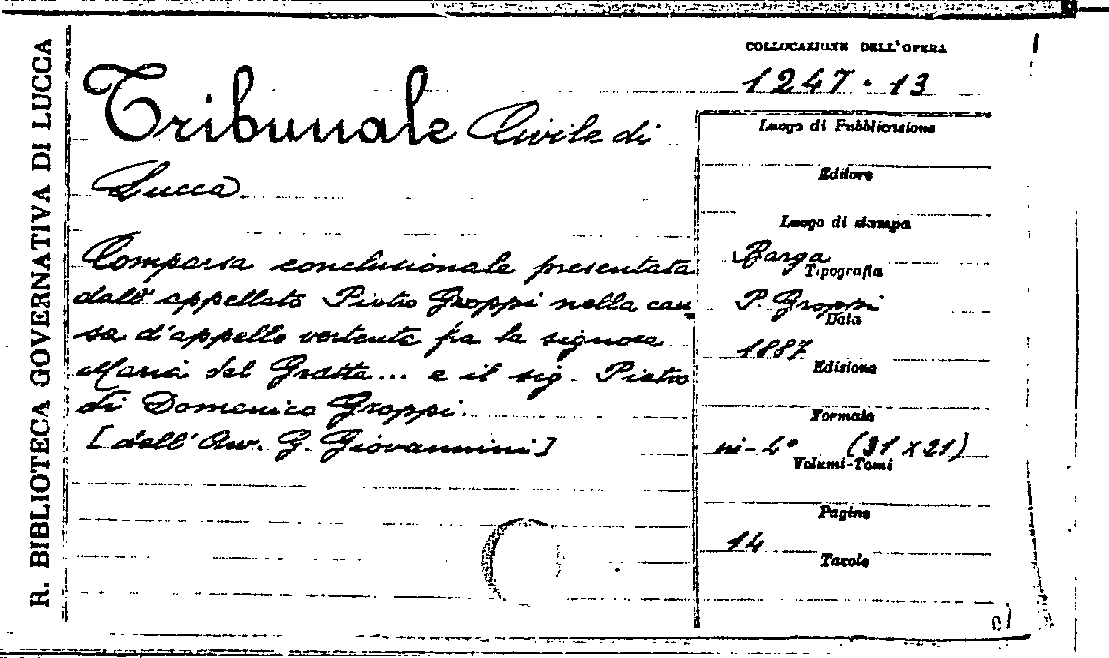 R. BIBLIOTECA GOVERNATIVA DI LUCCA
COLLOCAZIONE DELL'OPERA
1247 - 13
Tribunale Civile di
Lucca
Comparsa conclusionale presentata
dall'appellato Pietro Groppi nella cau-
sa d'appello vertente fra la signora
Maria del Gratta... e il sig. Pietro
di Domenico Groppi.
[dell'Avv. G. Giovannini]
Luogo di Pubblicazione
Editore
Luogo di stampa
Barga
Tipografia
P. Groppi
Data
1887
Edizione
Formato
in-4° (31 x 21)
Volumi-Tomi
Pagine
14
Tavole